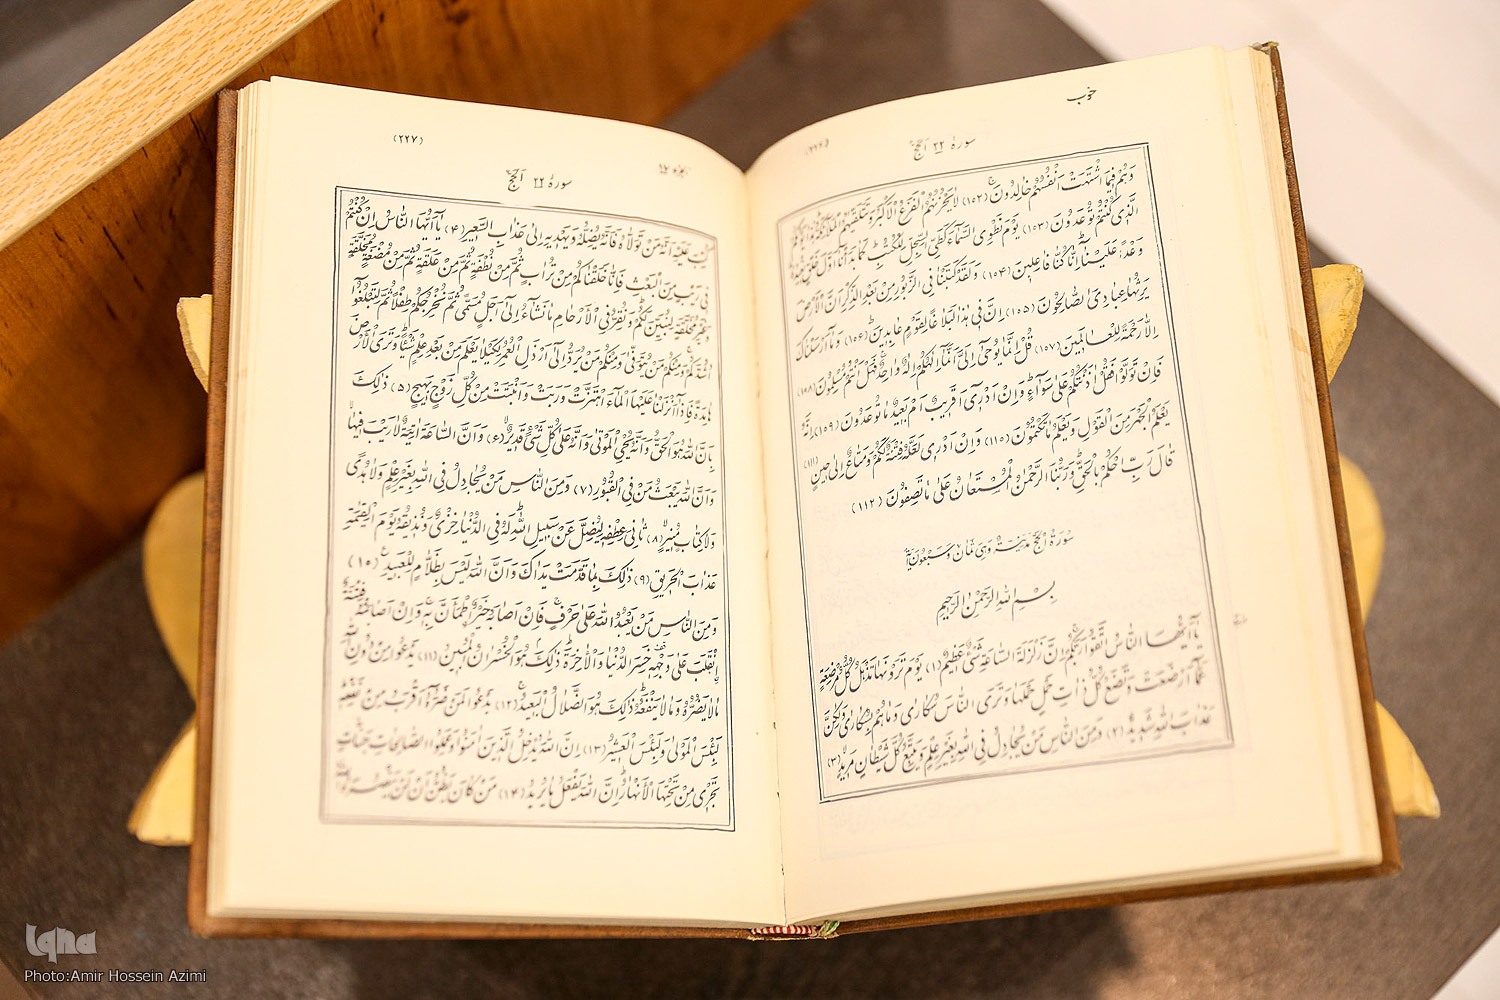 خوب
سورهٔ ٢٢ اَلحَجّ
وَهُمْ فِيمَا اشْتَهَتْ اَنْفُسُهُمْ خَالِدُونَ (١٥٢) لَا يَحْزُنُهُمُ الْفَزَعُ الْاَكْبَرُ وَتَتَلَقّٰيهُمُ الْمَلٰٓئِكَةُ هٰذَا يَوْمُكُمُ
الَّذِى كُنْتُمْ تُوعَدُونَ (١٥٣) يَوْمَ نَطْوِى السَّمَآءَ كَطَىِّ السِّجِلِّ لِلْكُتُبِ كَمَا بَدَاْنَآ اَوَّلَ خَلْقٍ نُعِيدُهُ
وَعْدًا عَلَيْنَا اِنَّا كُنَّا فَاعِلِينَ (١٥٤) وَلَقَدْ كَتَبْنَا فِى الزَّبُورِ مِنْ بَعْدِ الذِّكْرِ اَنَّ الْاَرْضَ
يَرِثُهَا عِبَادِىَ الصَّالِحُونَ (١٥٥) اِنَّ فِى هٰذَا لَبَلَاغًا لِقَوْمٍ عَابِدِينَ (١٥٦) وَمَآ اَرْسَلْنَاكَ
اِلَّا رَحْمَةً لِلْعَالَمِينَ (١٥٧) قُلْ اِنَّمَا يُوحٰىٓ اِلَىَّ اَنَّمَآ اِلٰهُكُمْ اِلٰهٌ وَاحِدٌ فَهَلْ اَنْتُمْ مُسْلِمُونَ (١٥٨)
فَاِنْ تَوَلَّوْا فَقُلْ اٰذَنْتُكُمْ عَلٰى سَوَآءٍ وَاِنْ اَدْرِىٓ اَقَرِيبٌ اَمْ بَعِيدٌ مَا تُوعَدُونَ (١٥٩) اِنَّهُ
يَعْلَمُ الْجَهْرَ مِنَ الْقَوْلِ وَيَعْلَمُ مَا تَكْتُمُونَ (١١٥) وَاِنْ اَدْرِى لَعَلَّهُ فِتْنَةٌ لَكُمْ وَمَتَاعٌ اِلٰى حِينٍ (١١١)
قَالَ رَبِّ احْكُمْ بِالْحَقِّ وَرَبُّنَا الرَّحْمٰنُ الْمُسْتَعَانُ عَلٰى مَا تَصِفُونَ (١١٢)
سُورَةُ الْحَجِّ مَدَنِيَّةٌ وَهِىَ ثَمَانٌ وَسَبْعُونَ اٰيَةً
بِسْمِ اللهِ الرَّحْمٰنِ الرَّحِيمِ
يَآ اَيُّهَا النَّاسُ اتَّقُوا رَبَّكُمْ اِنَّ زَلْزَلَةَ السَّاعَةِ شَىْءٌ عَظِيمٌ (١) يَوْمَ تَرَوْنَهَا تَذْهَلُ كُلُّ مُرْضِعَةٍ
عَمَّآ اَرْضَعَتْ وَتَضَعُ كُلُّ ذَاتِ حَمْلٍ حَمْلَهَا وَتَرَى النَّاسَ سُكَارٰى وَمَا هُمْ بِسُكَارٰى وَلٰكِنَّ
عَذَابَ اللهِ شَدِيدٌ (٢) وَمِنَ النَّاسِ مَنْ يُجَادِلُ فِى اللهِ بِغَيْرِ عِلْمٍ وَيَتَّبِعُ كُلَّ شَيْطَانٍ مَرِيدٍ (٣)
(٢٢٧)
سورهٔ ٢٢ اَلحَجّ
كُتِبَ عَلَيْهِ اَنَّهُ مَنْ تَوَلَّاهُ فَاَنَّهُ يُضِلُّهُ وَيَهْدِيهِ اِلٰى عَذَابِ السَّعِيرِ (۴) يَآ اَيُّهَا النَّاسُ اِنْ كُنْتُمْ
فِى رَيْبٍ مِنَ الْبَعْثِ فَاِنَّا خَلَقْنَاكُمْ مِنْ تُرَابٍ ثُمَّ مِنْ نُطْفَةٍ ثُمَّ مِنْ عَلَقَةٍ ثُمَّ مِنْ مُضْغَةٍ مُخَلَّقَةٍ
وَغَيْرِ مُخَلَّقَةٍ لِنُبَيِّنَ لَكُمْ وَنُقِرُّ فِى الْاَرْحَامِ مَا نَشَآءُ اِلٰىٓ اَجَلٍ مُسَمًّى ثُمَّ نُخْرِجُكُمْ طِفْلًا ثُمَّ لِتَبْلُغُوٓا
اَشُدَّكُمْ وَمِنْكُمْ مَنْ يُتَوَفّٰى وَمِنْكُمْ مَنْ يُرَدُّ اِلٰىٓ اَرْذَلِ الْعُمُرِ لِكَيْلَا يَعْلَمَ مِنْ بَعْدِ عِلْمٍ شَيْئًا وَتَرَى الْاَرْضَ
هَامِدَةً فَاِذَآ اَنْزَلْنَا عَلَيْهَا الْمَآءَ اهْتَزَّتْ وَرَبَتْ وَاَنْبَتَتْ مِنْ كُلِّ زَوْجٍ بَهِيجٍ (٥) ذٰلِكَ
بِاَنَّ اللهَ هُوَ الْحَقُّ وَاَنَّهُ يُحْيِى الْمَوْتٰى وَاَنَّهُ عَلٰى كُلِّ شَىْءٍ قَدِيرٌ (۶) وَاَنَّ السَّاعَةَ اٰتِيَةٌ لَا رَيْبَ فِيهَا
وَاَنَّ اللهَ يَبْعَثُ مَنْ فِى الْقُبُورِ (٧) وَمِنَ النَّاسِ مَنْ يُجَادِلُ فِى اللهِ بِغَيْرِ عِلْمٍ وَلَا هُدًى
وَلَا كِتَابٍ مُنِيرٍ (٨) ثَانِىَ عِطْفِهِ لِيُضِلَّ عَنْ سَبِيلِ اللهِ لَهُ فِى الدُّنْيَا خِزْىٌ وَنُذِيقُهُ يَوْمَ الْقِيٰمَةِ
عَذَابَ الْحَرِيقِ (٩) ذٰلِكَ بِمَا قَدَّمَتْ يَدَاكَ وَاَنَّ اللهَ لَيْسَ بِظَلَّامٍ لِلْعَبِيدِ (١٥)
وَمِنَ النَّاسِ مَنْ يَعْبُدُ اللهَ عَلٰى حَرْفٍ فَاِنْ اَصَابَهُ خَيْرٌ اطْمَاَنَّ بِهِ وَاِنْ اَصَابَتْهُ فِتْنَةٌ
اِنْقَلَبَ عَلٰى وَجْهِهِ خَسِرَ الدُّنْيَا وَالْاٰخِرَةَ ذٰلِكَ هُوَ الْخُسْرَانُ الْمُبِينُ (١١) يَدْعُوا مِنْ دُونِ اللهِ
مَا لَا يَضُرُّهُ وَمَا لَا يَنْفَعُهُ ذٰلِكَ هُوَ الضَّلَالُ الْبَعِيدُ (١٢) يَدْعُوا لَمَنْ ضَرُّهُٓ اَقْرَبُ مِنْ نَفْعِهِ
لَبِئْسَ الْمَوْلٰى وَلَبِئْسَ الْعَشِيرُ (١٣) اِنَّ اللهَ يُدْخِلُ الَّذِينَ اٰمَنُوا وَعَمِلُوا الصَّالِحَاتِ جَنَّاتٍ
تَجْرِى مِنْ تَحْتِهَا الْاَنْهَارُ اِنَّ اللهَ يَفْعَلُ مَا يُرِيدُ (١۴) مَنْ كَانَ يَظُنُّ اَنْ لَنْ يَنْصُرَهُ
iqna
Photo:Amir Hossein Azimi